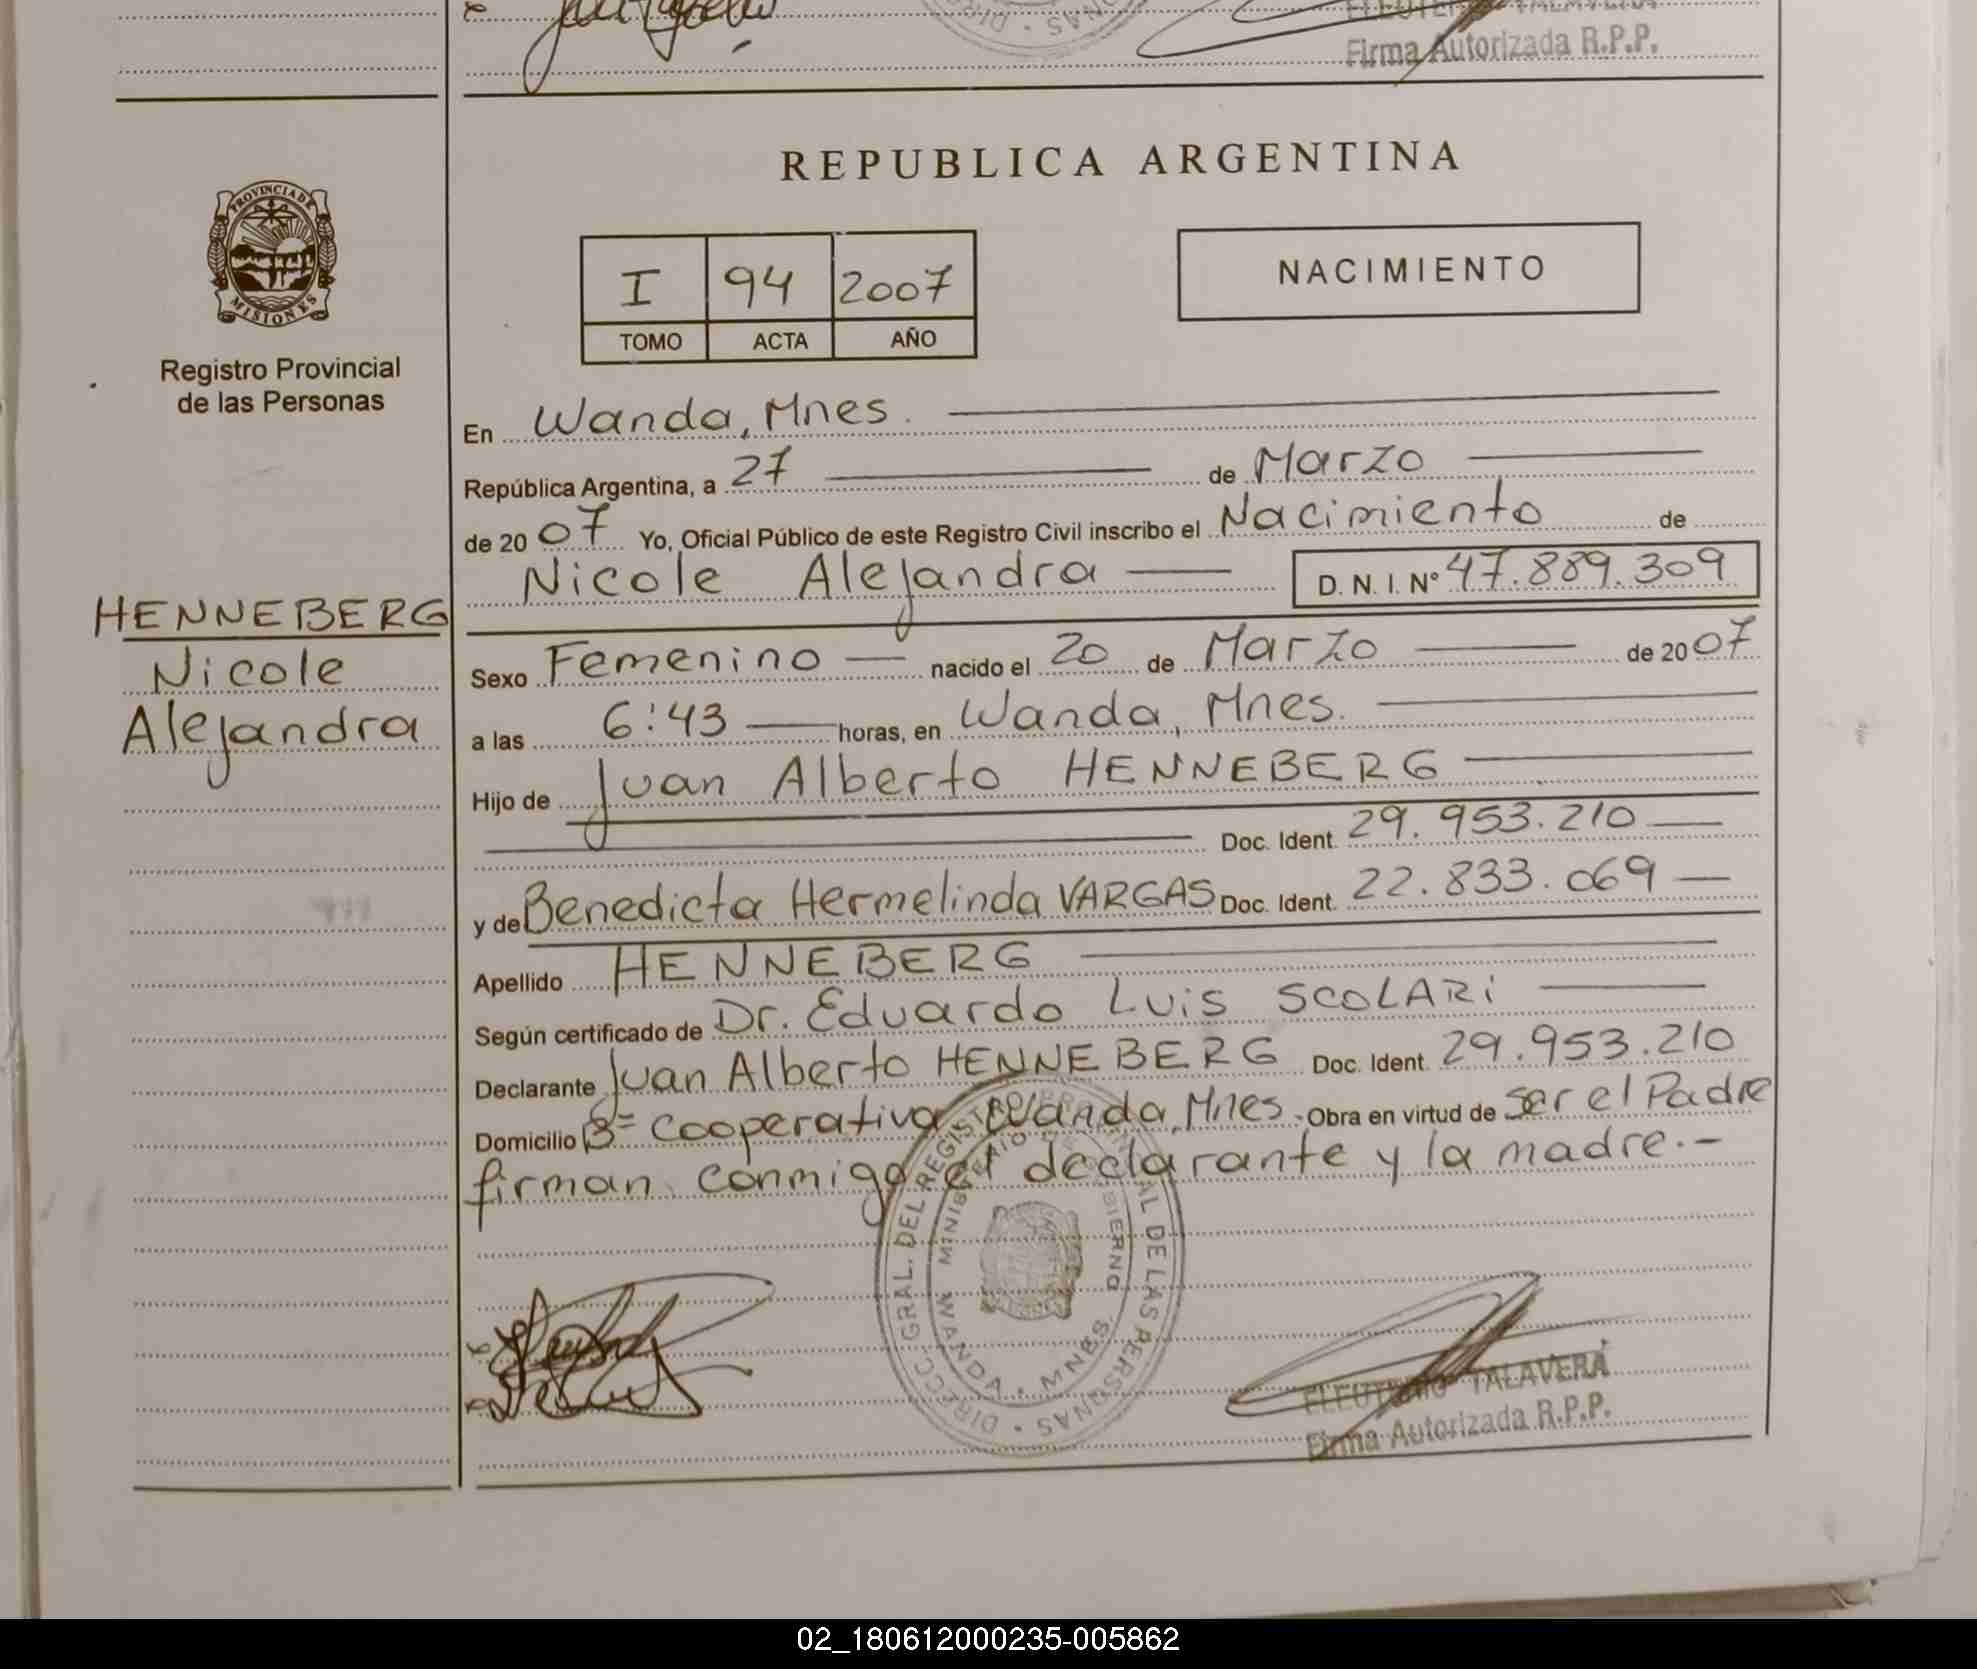 ELEUTERIO TALAVERA
Firma Autorizada R.P.P.
PROVINCIA DE
MISIONES
Registro Provincial
de las Personas
HENNEBERG
Nicole
Alejandra
REPUBLICA ARGENTINA
I 94 2007
TOMO ACTA AÑO
NACIMIENTO
En Wanda, Mnes.
República Argentina, a 27 de Marzo
de 20 07 Yo, Oficial Público de este Registro Civil inscribo el Nacimiento de
Nicole Alejandra D. N. I. Nº 47.889.309
Sexo Femenino nacido el 20 de Marzo de 20 07
a las 6:43 horas, en Wanda, Mnes.
Hijo de Juan Alberto HENNEBERG
Doc. Ident. 29.953.210
y de Benedicta Hermelinda VARGAS Doc. Ident. 22.833.069
Apellido HENNEBERG
Según certificado de Dr. Eduardo Luis SCOLARI
Declarante Juan Alberto HENNEBERG Doc. Ident. 29.953.210
Domicilio Bº Cooperativa Wanda, Mnes. Obra en virtud de ser el Padre
firman conmigo el declarante y la madre.-
DIRECC. GRAL. DEL REGISTRO PROVINCIAL DE LAS PERSONAS
MINISTERIO DE GOBIERNO
WANDA - MNES.
ELEUTERIO TALAVERA
Firma Autorizada R.P.P.
02_180612000235-005862